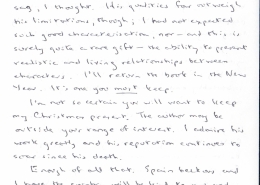 say, I thought. His qualities far outweigh
his limitations, though; I had not expected
such good characterisation, nor – and this is
surely quite a rare gift – the ability to present
realistic and living relationships between
characters. I'll return the book in the New
Year. It's one you must keep.
I'm not so certain you will want to keep
my Christmas present. The author may be
outside your range of interest. I admire his
work greatly and his reputation continues to
soar since his death.
Enough of all that, Spain beckons and